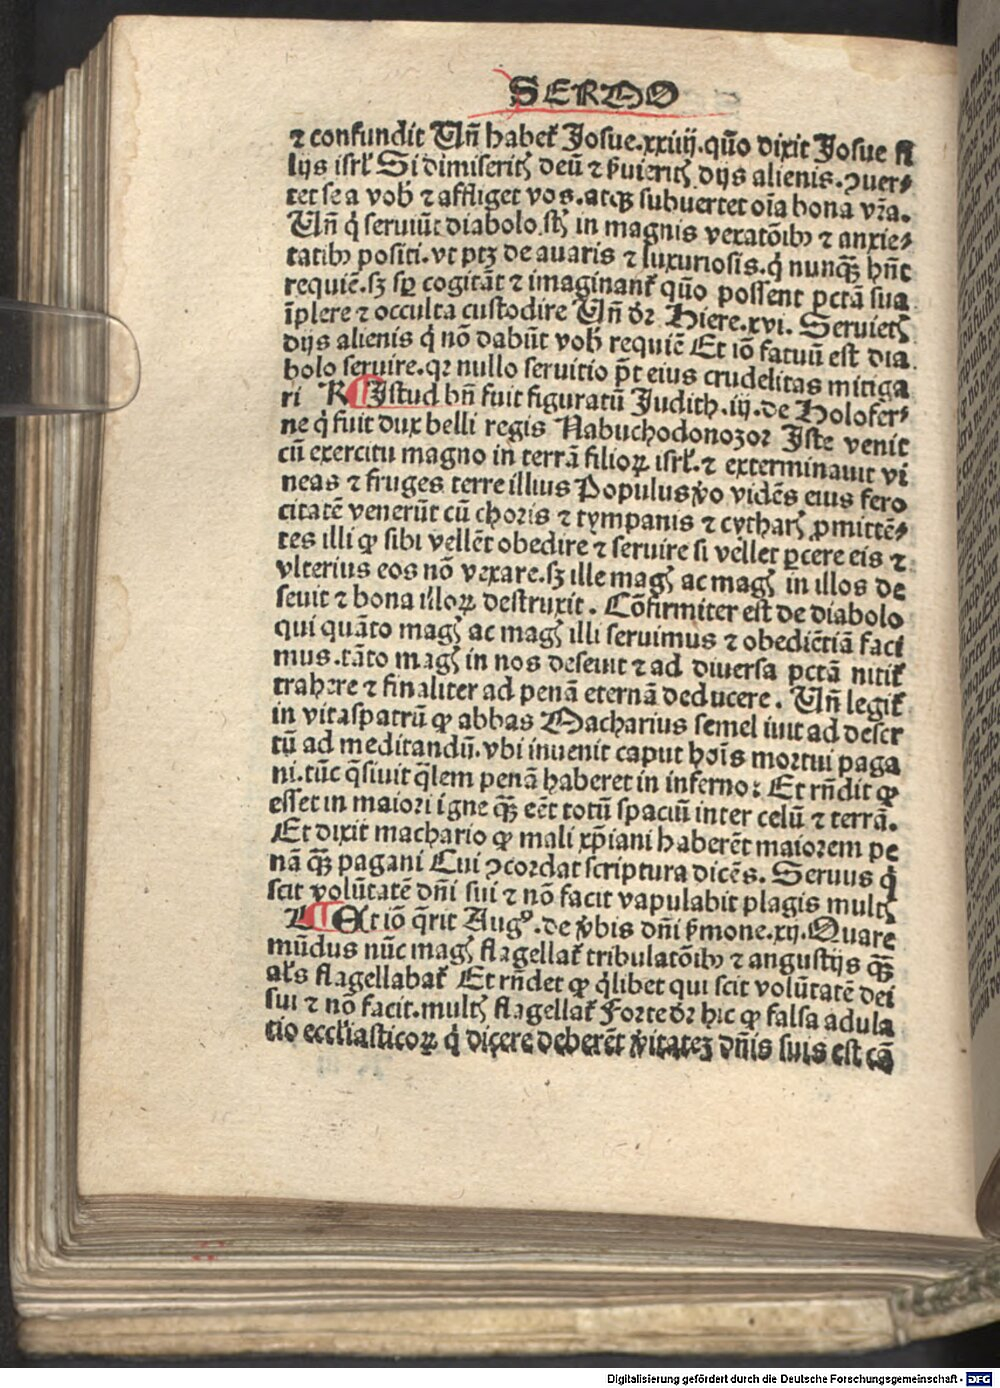 SERMO
⁊ confundit Vñ habet̃ Josue.xxiiij.quõo dixit Josue fi
lijs isrl̃ Si dimiserit̃ deũ ⁊ ẜuierit̃ dijs alienis.ꝯuer⸗
tet se a vob̃ ⁊ affliget vos.atqꝫ subuertet oĩa bona vr̃a.
Vñ q̇ seruiũt diabolo.st̃ in magnis vexatõibꝰ ⁊ anxie⸗
tatibꝰ positi.vt ptꝫ de auaris ⁊ luxuriosis.q̇ nunqꝫ̃ hñt
requiẽ.sꝫ sꝑ cogitãt ⁊ imaginant̃ quõo possent pctã sua
ĩplere ⁊ occulta custodire Vñ dr̃ Hiere.xvi. Seruiet̃
dijs alienis q̇ nõ dabũt vob̃ requiẽ Et iõ fatuũ est dia
bolo seruire.qꝛ nullo seruitio põt eius crudelitas mitiga
ri K ¶ Istud bñ fuit figuratũ Judith.iij.de Holofer⸗
ne q̇ fuit dux belli regis Nabuchodonozor Iste venit
cũ exercitu magno in terrã filioꝝ isrl̃.⁊ exterminauit vi
neas ⁊ fruges terre illius Populus ꝟo vidẽs eius fero
citatẽ venerũt cũ choris ⁊ tympanis ⁊ cythar̃ ꝓmittẽ⸗
tes illi ꝙ sibi vellẽt obedire ⁊ seruire si vellet ꝑcere eis ⁊
vlterius eos nõ vexare.sꝫ ille mag̃ ac mag̃ in illos de
seuit ⁊ bona illoꝝ destruxit. Cõfirmiter est de diabolo
qui quãto mag̃ ac mag̃ illi seruimus ⁊ obediẽtiã faci
mus.tãto mag̃ in nos deseuit ⁊ ad diuersa pctã nitit̃
trahere ⁊ finaliter ad penã eternã deducere. Vñ legit̃
in vitaspatrũ ꝙ abbas Macharius semel iuit ad deser
tũ ad meditandũ.vbi inuenit caput hoĩs mortui paga
ni.tũc q̃siuit q̃lem penã haberet in inferno: Et rñdit ꝙ
esset in maiori igne qꝫ̃ eẽt totũ spaciũ inter celũ ⁊ terrã.
Et dixit machario ꝙ mali xp̃iani haberẽt maiorem pe
nã qꝫ̃ pagani Cui ꝯcordat scriptura dicẽs. Seruus q̇
scit volũtatẽ dñi sui ⁊ nõ facit vapulabit plagis mult̃
L ¶ Et iõ q̃rit Augꝰ.de ꝟbis dñi ẜmone.xij.Quare
mũdus nũc mag̃ flagellat̃ tribulatõibꝰ ⁊ angustijs qꝫ̃
al̃s flagellabat̃ Et rñdet ꝙ q̇libet qui scit volũtatẽ dei
sui ⁊ nõ facit.mult̃ flagellat̃ Forte dr̃ hic ꝙ falsa adula
tio eccl̃iasticoꝝ q̇ dicere deberẽt ꝟitateꝫ dñis suis est cã
Digitalisierung gefördert durch die Deutsche Forschungsgemeinschaft - DFG